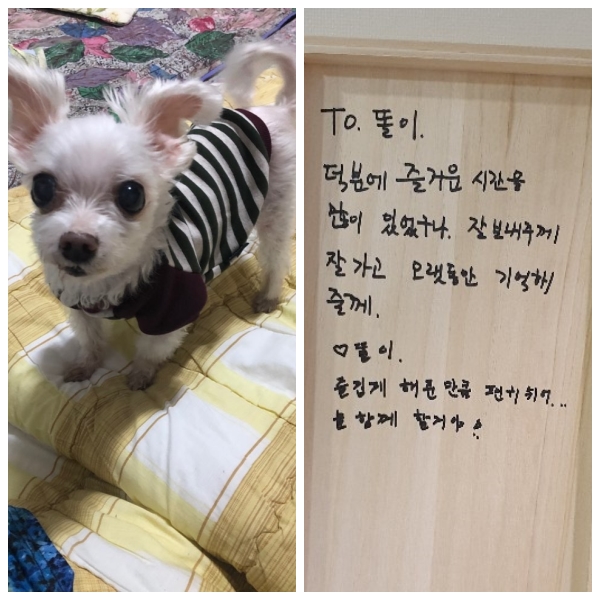 TO. 똘이.
덕분에 즐거운 시간을
많이 있었구나. 잘보내주께
잘 가고 오랫동안 기억해
줄께.
♡똘이.
즐겁게 해준만큼 편히 쉬어...
늘 함께 할거야!